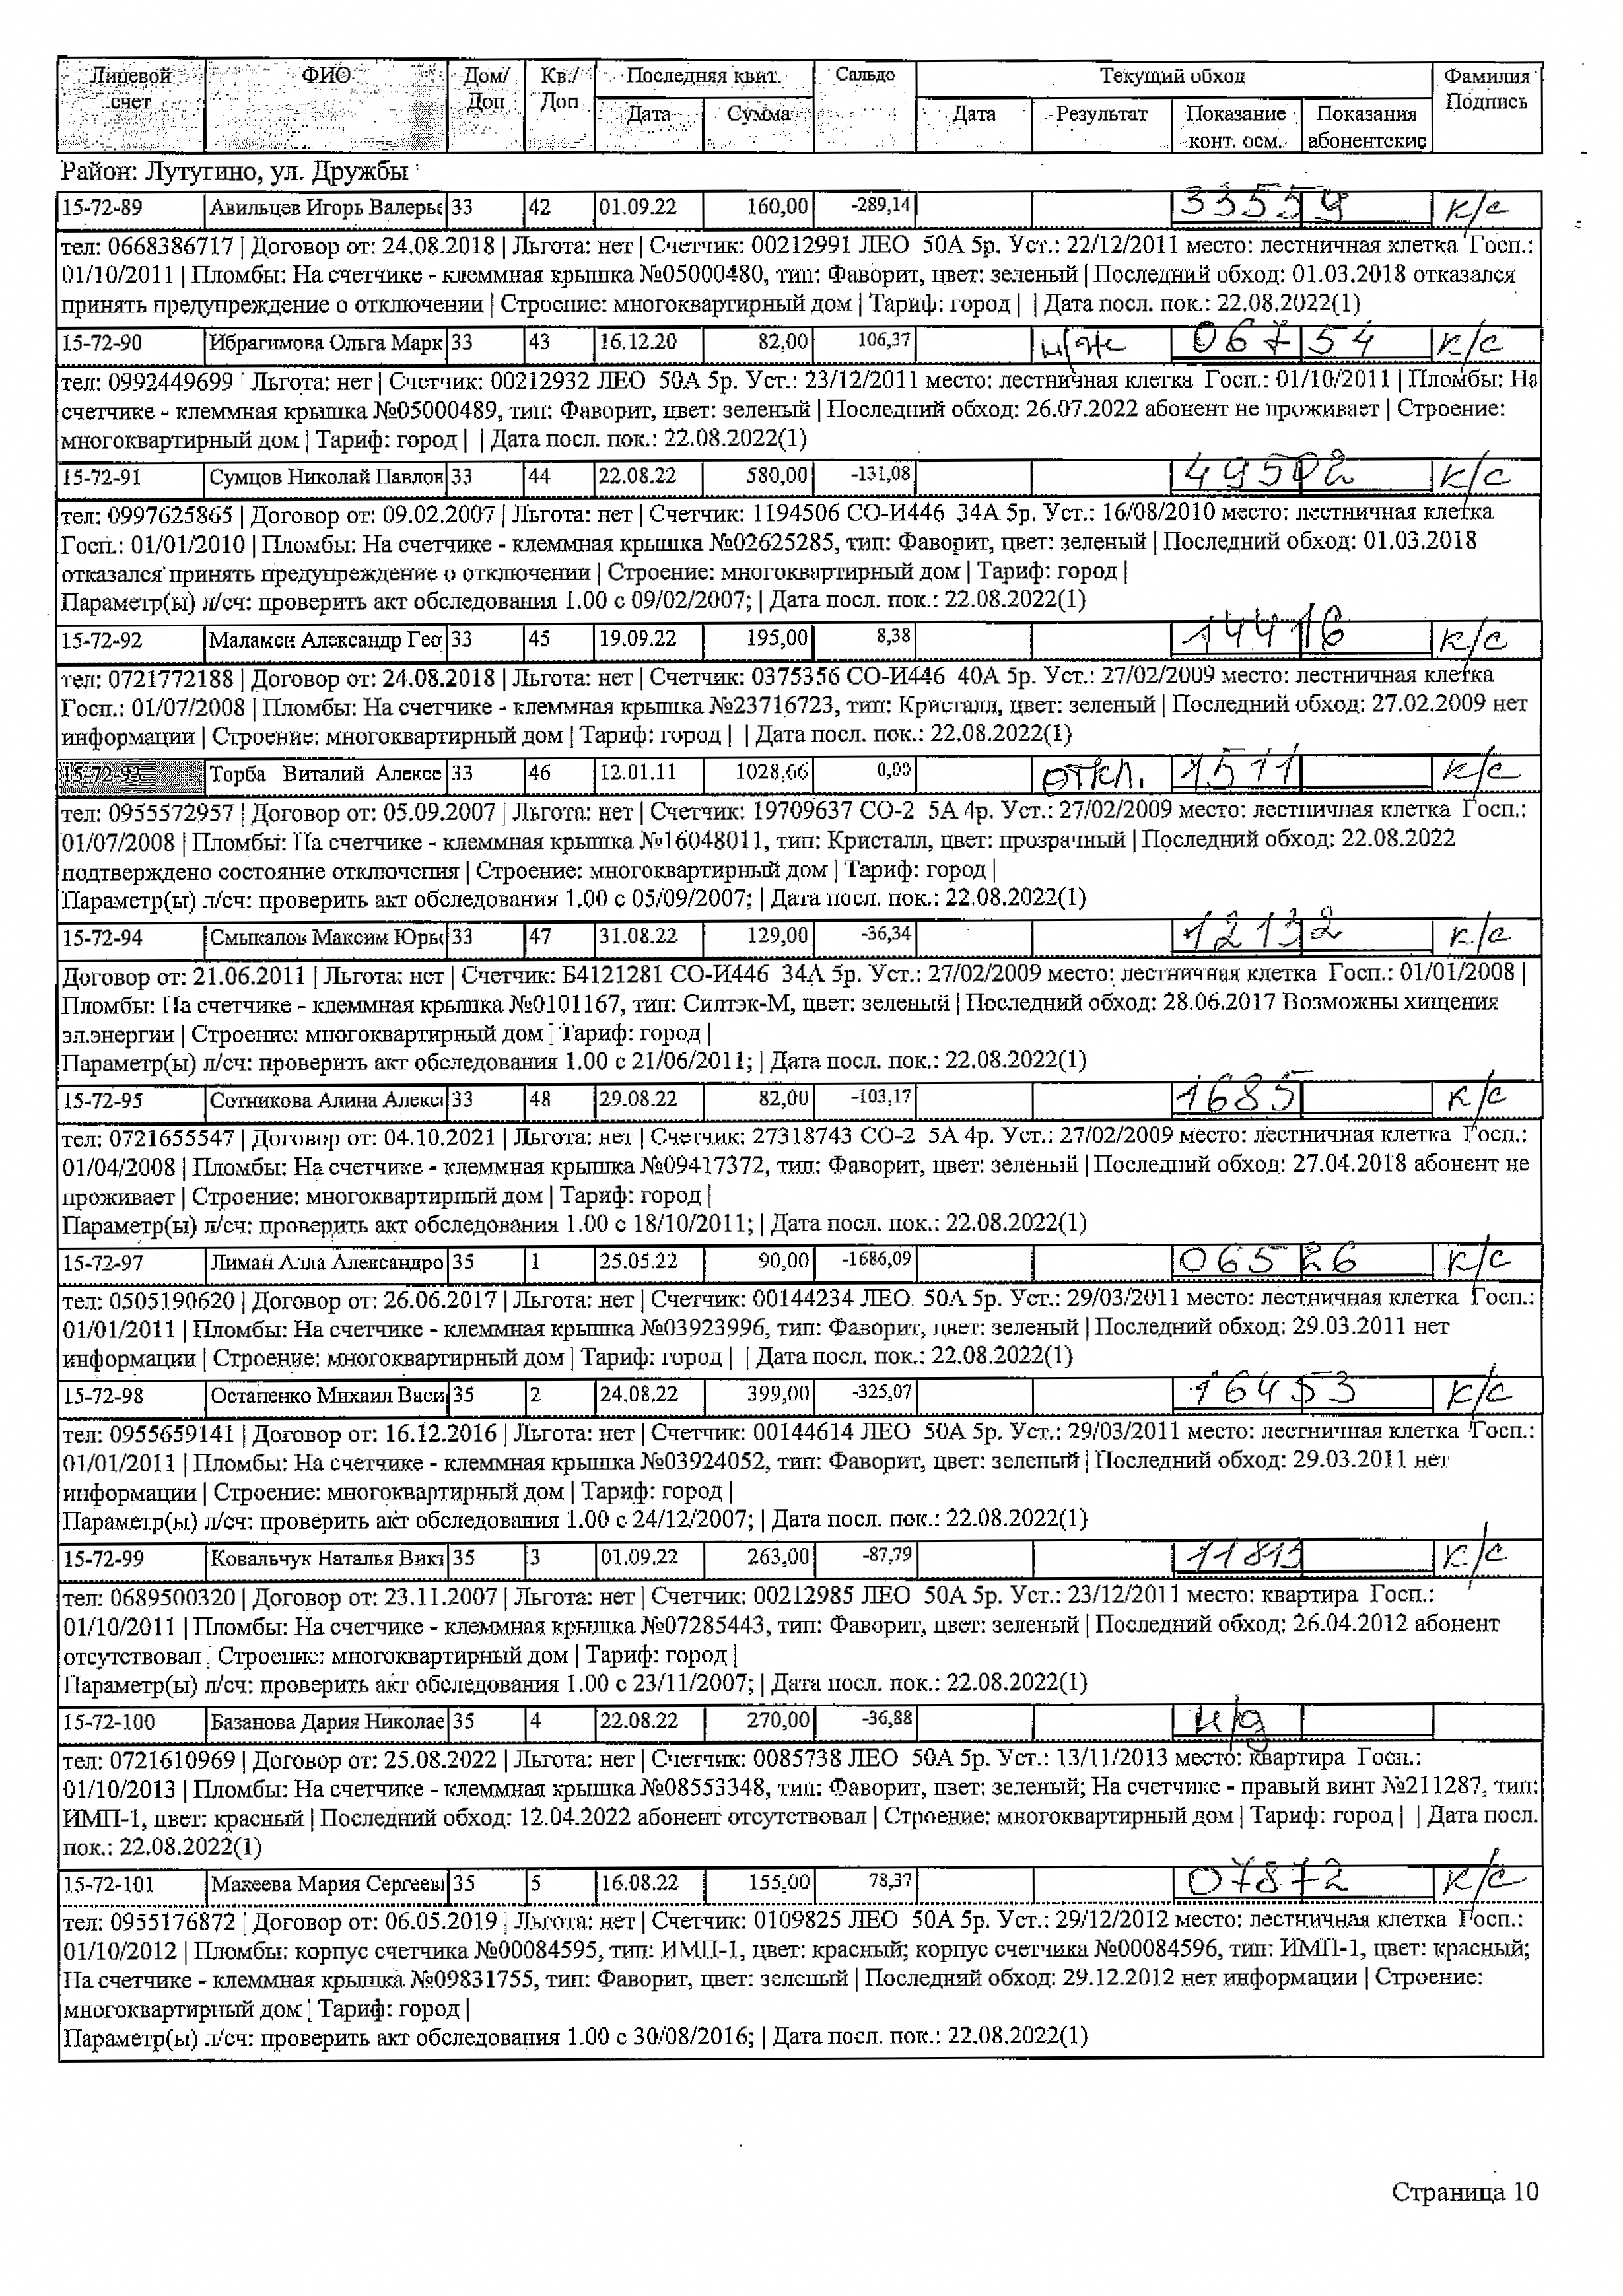 Лицевой счет | ФИО | Дом/ Доп | Кв./ Доп | Последняя квит. | Сальдо | Текущий обход | Фамилия Подпись
Дата | Сумма | Дата | Результат | Показание конт. осм. | Показания абонентские
Район: Лутугино, ул. Дружбы
15-72-89 | Авильцев Игорь Валерьє | 33 | 42 | 01.09.22 | 160,00 | -289,14 | 33559 | к/с
тел: 0668386717 | Договор от: 24.08.2018 | Льгота: нет | Счетчик: 00212991 ЛЕО 50А 5р. Уст.: 22/12/2011 место: лестничная клетка Госп.:
01/10/2011 | Пломбы: На счетчике - клеммная крышка №05000480, тип: Фаворит, цвет: зеленый | Последний обход: 01.03.2018 отказался
принять предупреждение о отключении | Строение: многоквартирный дом | Тариф: город | | Дата посл. пок.: 22.08.2022(1)
15-72-90 | Ибрагимова Ольга Марк | 33 | 43 | 16.12.20 | 82,00 | 106,37 | н/ж | 06754 | к/с
тел: 0992449699 | Льгота: нет | Счетчик: 00212932 ЛЕО 50А 5р. Уст.: 23/12/2011 место: лестничная клетка Госп.: 01/10/2011 | Пломбы: На
счетчике - клеммная крышка №05000489, тип: Фаворит, цвет: зеленый | Последний обход: 26.07.2022 абонент не проживает | Строение:
многоквартирный дом | Тариф: город | | Дата посл. пок.: 22.08.2022(1)
15-72-91 | Сумцов Николай Павлон | 33 | 44 | 22.08.22 | 580,00 | -131,08 | 49502 | к/с
тел: 0997625865 | Договор от: 09.02.2007 | Льгота: нет | Счетчик: 1194506 СО-И446 34А 5р. Уст.: 16/08/2010 место: лестничная клетка
Госп.: 01/01/2010 | Пломбы: На счетчике - клеммная крышка №02625285, тип: Фаворит, цвет: зеленый | Последний обход: 01.03.2018
отказался принять предупреждение о отключении | Строение: многоквартирный дом | Тариф: город |
Параметр(ы) л/сч: проверить акт обследования 1.00 с 09/02/2007; | Дата посл. пок.: 22.08.2022(1)
15-72-92 | Маламен Александр Гео | 33 | 45 | 19.09.22 | 195,00 | 8,38 | 14416 | к/с
тел: 0721772188 | Договор от: 24.08.2018 | Льгота: нет | Счетчик: 0375356 СО-И446 40А 5р. Уст.: 27/02/2009 место: лестничная клетка
Госп.: 01/07/2008 | Пломбы: На счетчике - клеммная крышка №23716723, тип: Кристалл, цвет: зеленый | Последний обход: 27.02.2009 нет
информации | Строение: многоквартирный дом | Тариф: город | | Дата посл. пок.: 22.08.2022(1)
15-72-93 | Торба Виталий Алексе | 33 | 46 | 12.01.11 | 1028,66 | 0,00 | откл. | 1511 | к/с
тел: 0955572957 | Договор от: 05.09.2007 | Льгота: нет | Счетчик: 19709637 СО-2 5А 4р. Уст.: 27/02/2009 место: лестничная клетка Госп.:
01/07/2008 | Пломбы: На счетчике - клеммная крышка №16048011, тип: Кристалл, цвет: прозрачный | Последний обход: 22.08.2022
подтверждено состояние отключения | Строение: многоквартирный дом | Тариф: город |
Параметр(ы) л/сч: проверить акт обследования 1.00 с 05/09/2007; | Дата посл. пок.: 22.08.2022(1)
15-72-94 | Смыкалов Максим Юры | 33 | 47 | 31.08.22 | 129,00 | -36,34 | 12132 | к/с
Договор от: 21.06.2011 | Льгота: нет | Счетчик: Б4121281 СО-И446 34А 5р. Уст.: 27/02/2009 место: лестничная клетка Госп.: 01/01/2008 |
Пломбы: На счетчике - клеммная крышка №0101167, тип: Силтэк-М, цвет: зеленый | Последний обход: 28.06.2017 Возможны хищения
эл.энергии | Строение: многоквартирный дом | Тариф: город |
Параметр(ы) л/сч: проверить акт обследования 1.00 с 21/06/2011; | Дата посл. пок.: 22.08.2022(1)
15-72-95 | Сотникова Алина Алекс | 33 | 48 | 29.08.22 | 82,00 | -103,17 | 1685 | к/с
тел: 0721655547 | Договор от: 04.10.2021 | Льгота: нет | Счетчик: 27318743 СО-2 5А 4р. Уст.: 27/02/2009 место: лестничная клетка Госп.:
01/04/2008 | Пломбы: На счетчике - клеммная крышка №09417372, тип: Фаворит, цвет: зеленый | Последний обход: 27.04.2018 абонент не
проживает | Строение: многоквартирный дом | Тариф: город |
Параметр(ы) л/сч: проверить акт обследования 1.00 с 18/10/2011; | Дата посл. пок.: 22.08.2022(1)
15-72-97 | Лиман Алла Александро | 35 | 1 | 25.05.22 | 90,00 | -1686,09 | 06526 | к/с
тел: 0505190620 | Договор от: 26.06.2017 | Льгота: нет | Счетчик: 00144234 ЛЕО 50А 5р. Уст.: 29/03/2011 место: лестничная клетка Госп.:
01/01/2011 | Пломбы: На счетчике - клеммная крышка №03923996, тип: Фаворит, цвет: зеленый | Последний обход: 29.03.2011 нет
информации | Строение: многоквартирный дом | Тариф: город | | Дата посл. пок.: 22.08.2022(1)
15-72-98 | Остапенко Михаил Васи | 35 | 2 | 24.08.22 | 399,00 | -325,07 | 16453 | к/с
тел: 0955659141 | Договор от: 16.12.2016 | Льгота: нет | Счетчик: 00144614 ЛЕО 50А 5р. Уст.: 29/03/2011 место: лестничная клетка Госп.:
01/01/2011 | Пломбы: На счетчике - клеммная крышка №03924052, тип: Фаворит, цвет: зеленый | Последний обход: 29.03.2011 нет
информации | Строение: многоквартирный дом | Тариф: город |
Параметр(ы) л/сч: проверить акт обследования 1.00 с 24/12/2007; | Дата посл. пок.: 22.08.2022(1)
15-72-99 | Ковальчук Наталья Викт | 35 | 3 | 01.09.22 | 263,00 | -87,79 | 11813 | к/с
тел: 0689500320 | Договор от: 23.11.2007 | Льгота: нет | Счетчик: 00212985 ЛЕО 50А 5р. Уст.: 23/12/2011 место: квартира Госп.:
01/10/2011 | Пломбы: На счетчике - клеммная крышка №07285443, тип: Фаворит, цвет: зеленый | Последний обход: 26.04.2012 абонент
отсутствовал | Строение: многоквартирный дом | Тариф: город |
Параметр(ы) л/сч: проверить акт обследования 1.00 с 23/11/2007; | Дата посл. пок.: 22.08.2022(1)
15-72-100 | Базанова Дария Николае | 35 | 4 | 22.08.22 | 270,00 | -36,88 | н/д
тел: 0721610969 | Договор от: 25.08.2022 | Льгота: нет | Счетчик: 0085738 ЛЕО 50А 5р. Уст.: 13/11/2013 место: квартира Госп.:
01/10/2013 | Пломбы: На счетчике - клеммная крышка №08553348, тип: Фаворит, цвет: зеленый; На счетчике - правый винт №211287, тип:
ИМП-1, цвет: красный | Последний обход: 12.04.2022 абонент отсутствовал | Строение: многоквартирный дом | Тариф: город | | Дата посл.
пок.: 22.08.2022(1)
15-72-101 | Макеева Мария Сергеев | 35 | 5 | 16.08.22 | 155,00 | 78,37 | 07872 | к/с
тел: 0955176872 | Договор от: 06.05.2019 | Льгота: нет | Счетчик: 0109825 ЛЕО 50А 5р. Уст.: 29/12/2012 место: лестничная клетка Госп.:
01/10/2012 | Пломбы: корпус счетчика №00084595, тип: ИМП-1, цвет: красный; корпус счетчика №00084596, тип: ИМП-1, цвет: красный;
На счетчике - клеммная крышка №09831755, тип: Фаворит, цвет: зеленый | Последний обход: 29.12.2012 нет информации | Строение:
многоквартирный дом | Тариф: город |
Параметр(ы) л/сч: проверить акт обследования 1.00 с 30/08/2016; | Дата посл. пок.: 22.08.2022(1)
Страница 10